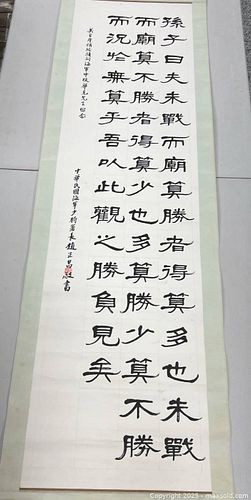 孫子曰夫未戰而廟算勝者得算多也未戰
而廟算不勝者得算少也多算勝少算不勝
而況於無算乎吾以此觀之勝負見矣
海軍中校
紀念
中華民國海軍少將署長趙正昌敬書
Copyright 2025 - maxsold.com